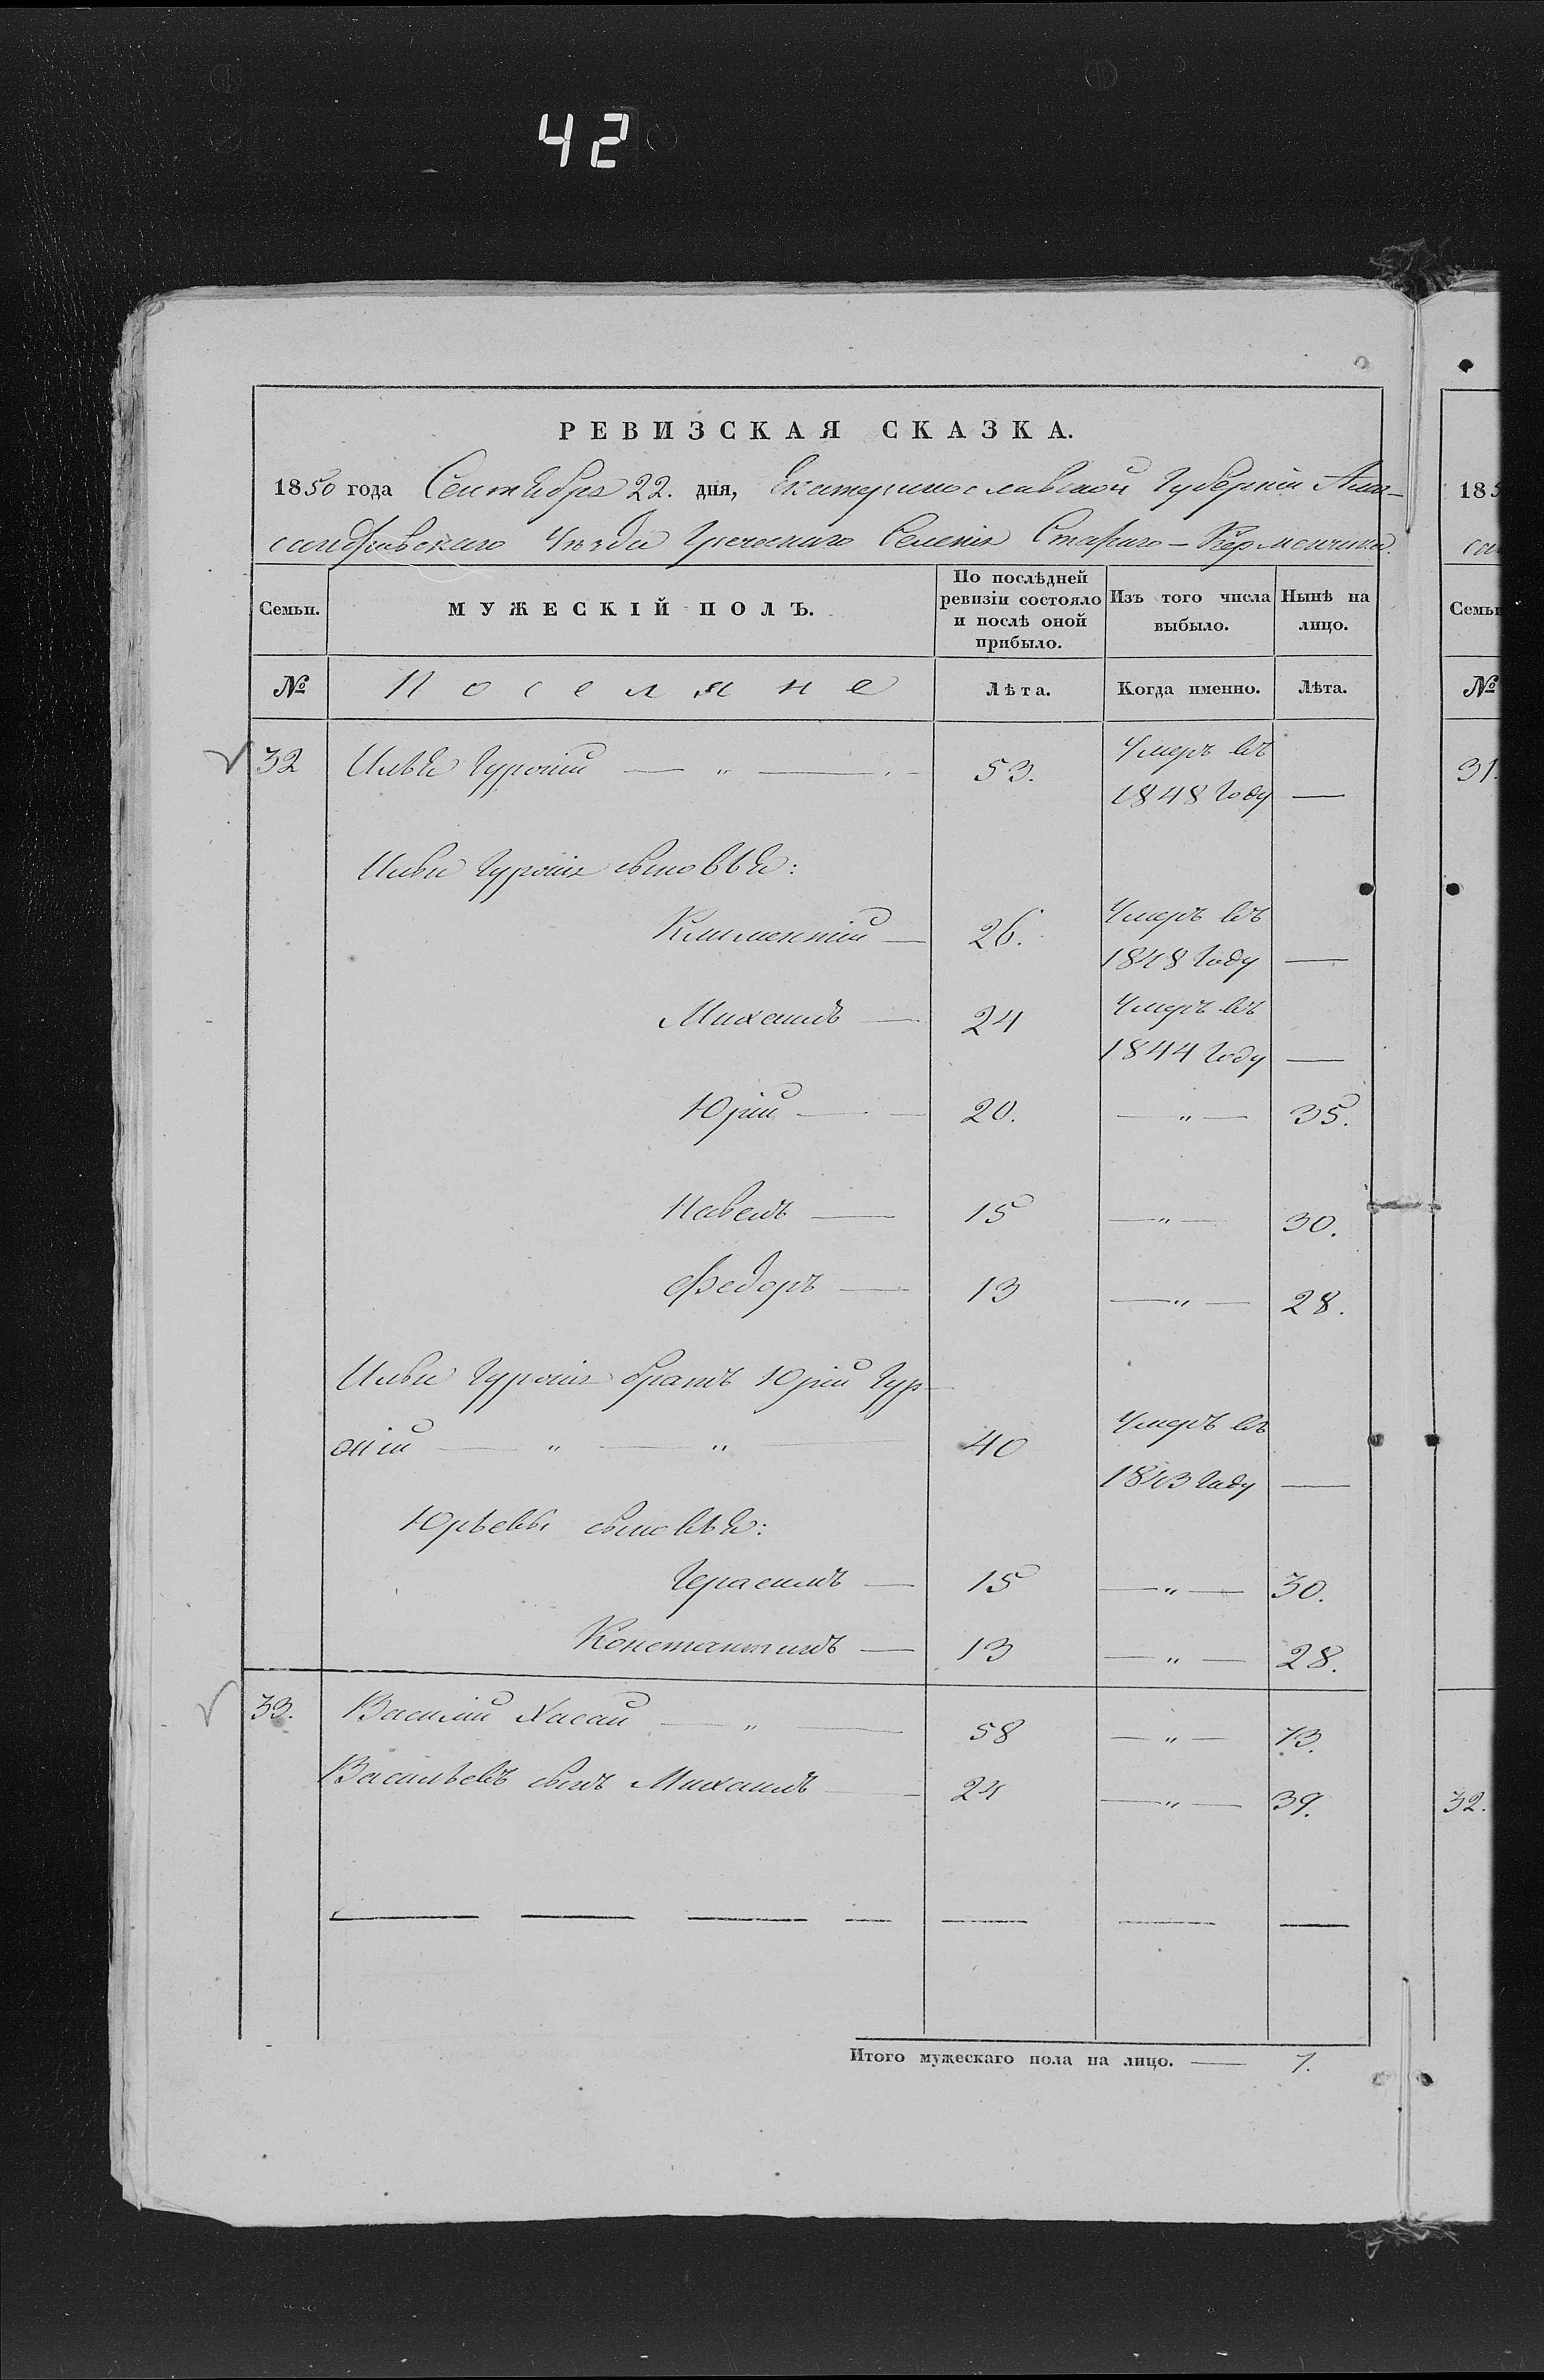 42
РЕВИЗСКАЯ СКАЗКА.
1850 года Сентября 22. дня, Екатеринославской Губерніи Алек-
сандровскаго Уѣзда Греческаго Селенія Стараго-Керменчика.
Семьи. МУЖЕСКІЙ ПОЛЪ. По послѣдней ревизіи состояло и послѣ оной прибыло. Изъ того числа выбыло. Нынѣ на лицо.
№ Поселяне Лѣта. Когда именно. Лѣта.
32 Илья 53. Умеръ въ
1848 Году —
Ильи сыновья:
Климентій — 26. Умеръ въ
1848 Году —
Михаилъ — 24 Умеръ въ
1844 Году —
Юрій — 20. — " — 35.
Павелъ — 15 — " — 30.
Федоръ — 13 — " — 28.
Ильи братъ Юрій
— " — " — 40 Умеръ въ
1843 Году —
Юрьевы сыновья:
Герасимъ — 15 — " — 30.
Константинъ — 13 — " — 28.
33. Василій Хасай — " — 58 — " — 73.
Васильевъ сынъ Михаилъ — 24 — " — 39.
Итого мужескаго пола на лицо. — 7.
185
са
Семьи
№
31.
32.